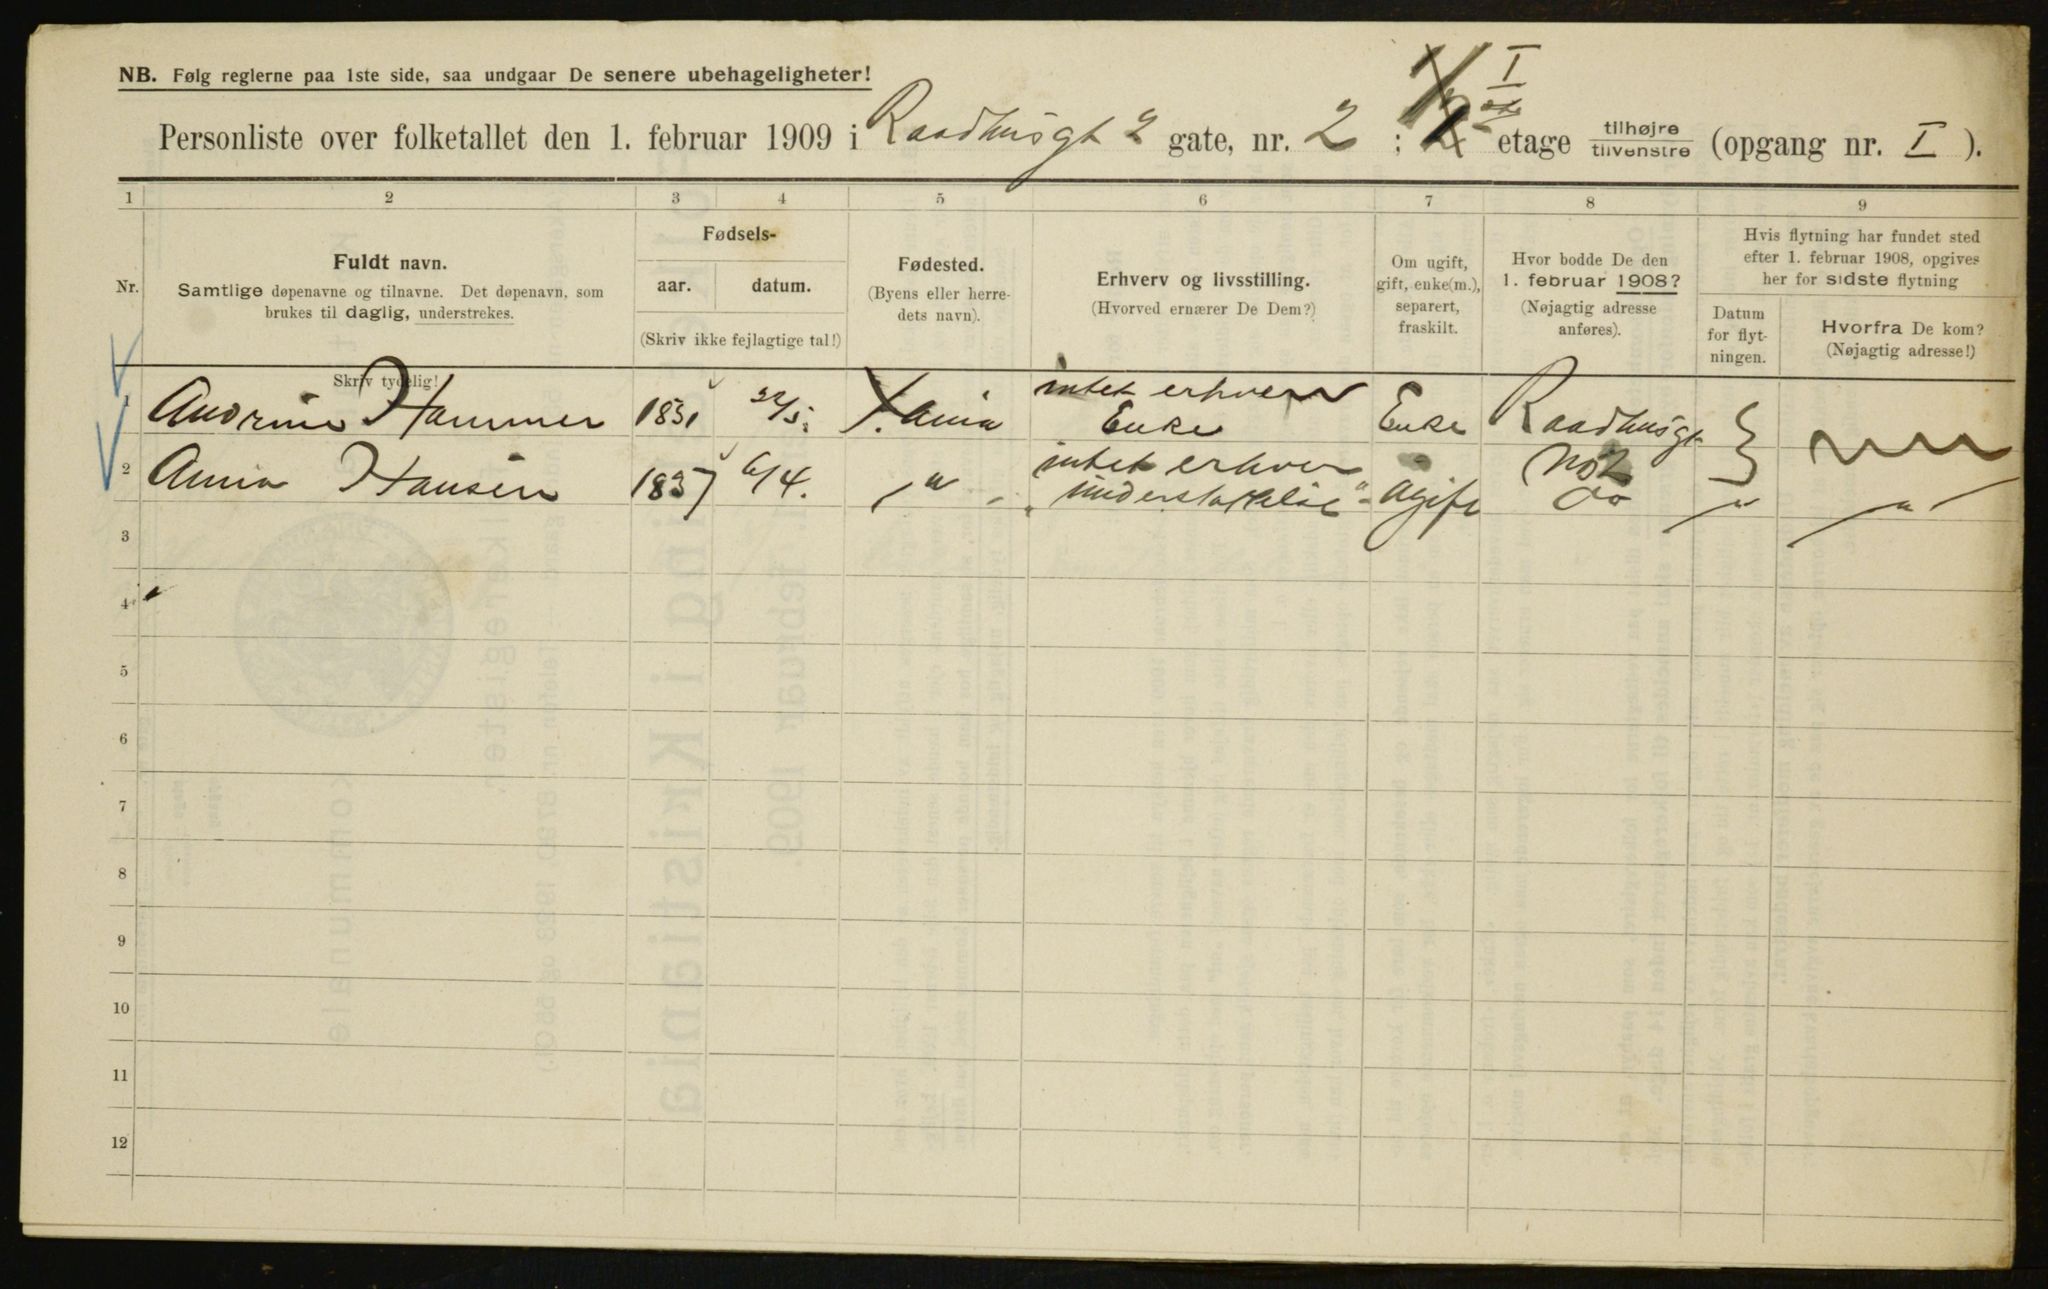 NB. Følg reglerne paa 1ste side, saa undgaar De senere ubehageligheter!
Personliste over folketallet den 1. februar 1909 i Raadhusgt 2 gate, nr. 2 ; I etage tilhøjre tilvenstre (opgang nr. I ).
1 2 3 4 5 6 7 8 9
Nr.
Fuldt navn.
Samtlige døpenavne og tilnavne. Det døpenavn, som
brukes til daglig, understrekes.
Skriv tydelig!
Fødsels-
aar. datum.
(Skriv ikke fejlagtige tal!)
Fødested.
(Byens eller herre-
dets navn).
Erhverv og livsstilling.
(Hvorved ernærer De Dem?)
Om ugift,
gift, enke(m.),
separert,
fraskilt.
Hvor bodde De den
1. februar 1908?
(Nøjagtig adresse
anføres).
Hvis flytning har fundet sted
efter 1. februar 1908, opgives
her for sidste flytning
Datum
for flyt-
ningen.
Hvorfra De kom?
(Nøjagtig adresse!)
1 Andrine Hammer 1831 22/5. X.ania intet erhverv Enke Enke Raadhusgt No 2
2 Anna Hansen 1837 6/4. " intet erhverv Ugift do " "
3
4
5
6
7
8
9
10
11
12